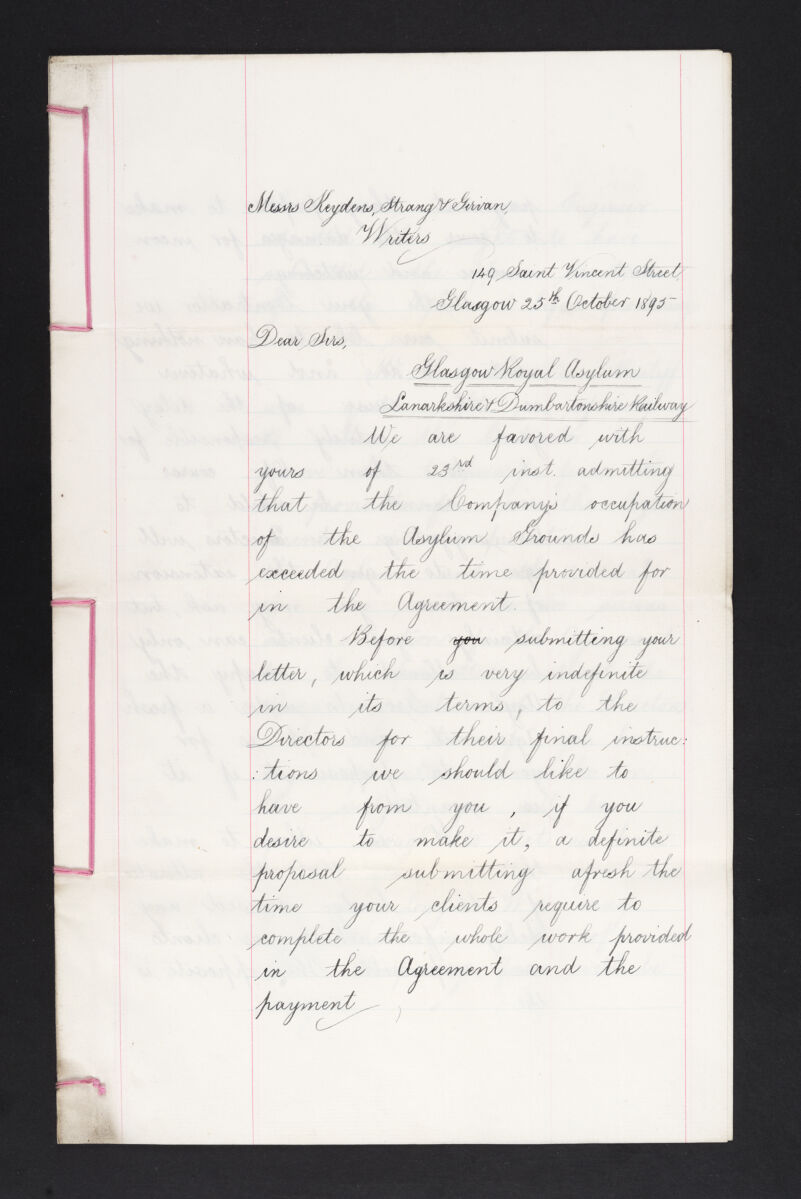 Messrs Keydens, Strang & Girvan,
Writers
149 Saint Vincent Street
Glasgow 25th October 1895
Dear Sirs,
Glasgow Royal Asylum
Lanarkshire & Dumbartonshire Railway
We are favored with
yours of 23rd inst. admitting
that the Company's occupation
of the Asylum Grounds has
exceeded the time provided for
in the Agreement.
Before you submitting your
letter, which is very indefinite
in its terms, to the
Directors for their final instruc:
:tions we should like to
have from you, if you
desire to make it, a definite
proposal submitting afresh the
time your clients require to
complete the whole work provided
in the Agreement and the
payment